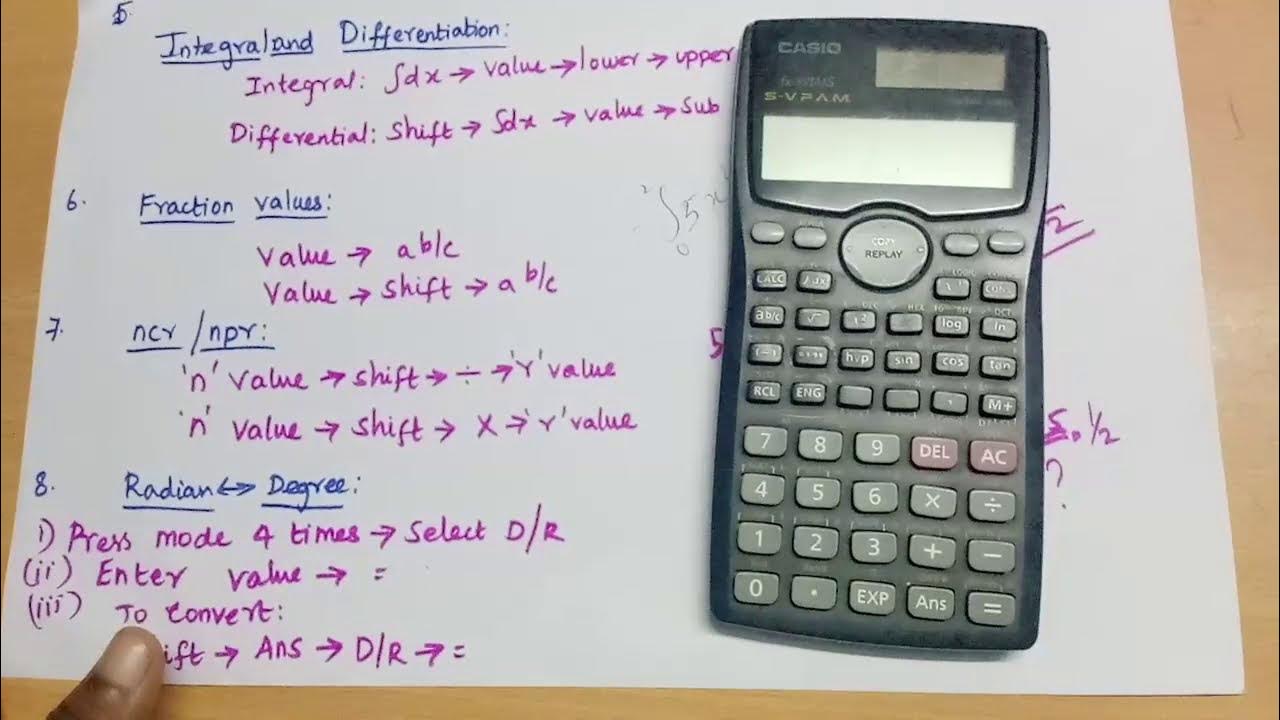 5
Integral and Differentiation:
Integral: ∫dx → value → lower → upper
Differential: Shift → ∫dx → value → Sub
6. Fraction values:
Value → a b/c
Value → Shift → a b/c
7. ncr / npr:
'n' value → shift → ÷ → 'r' value
'n' value → shift → X → 'r' value
8. Radian ↔ Degree:
i) Press mode 4 times → Select D/R
(ii) Enter value → =
(iii) To Convert:
ift → Ans → D/R → =
∫ 5x
2
0
5
5. 1/2
?
CASIO
S-VPAM
COPY
REPLAY
CALC ∫dx x⁻¹ CONST
LOGIC
ab/c √ x² log ln
(-) hyp sin cos tan
RCL ENG , M+
7 8 9 DEL AC
4 5 6 × ÷
1 2 3 + −
0 . EXP Ans =